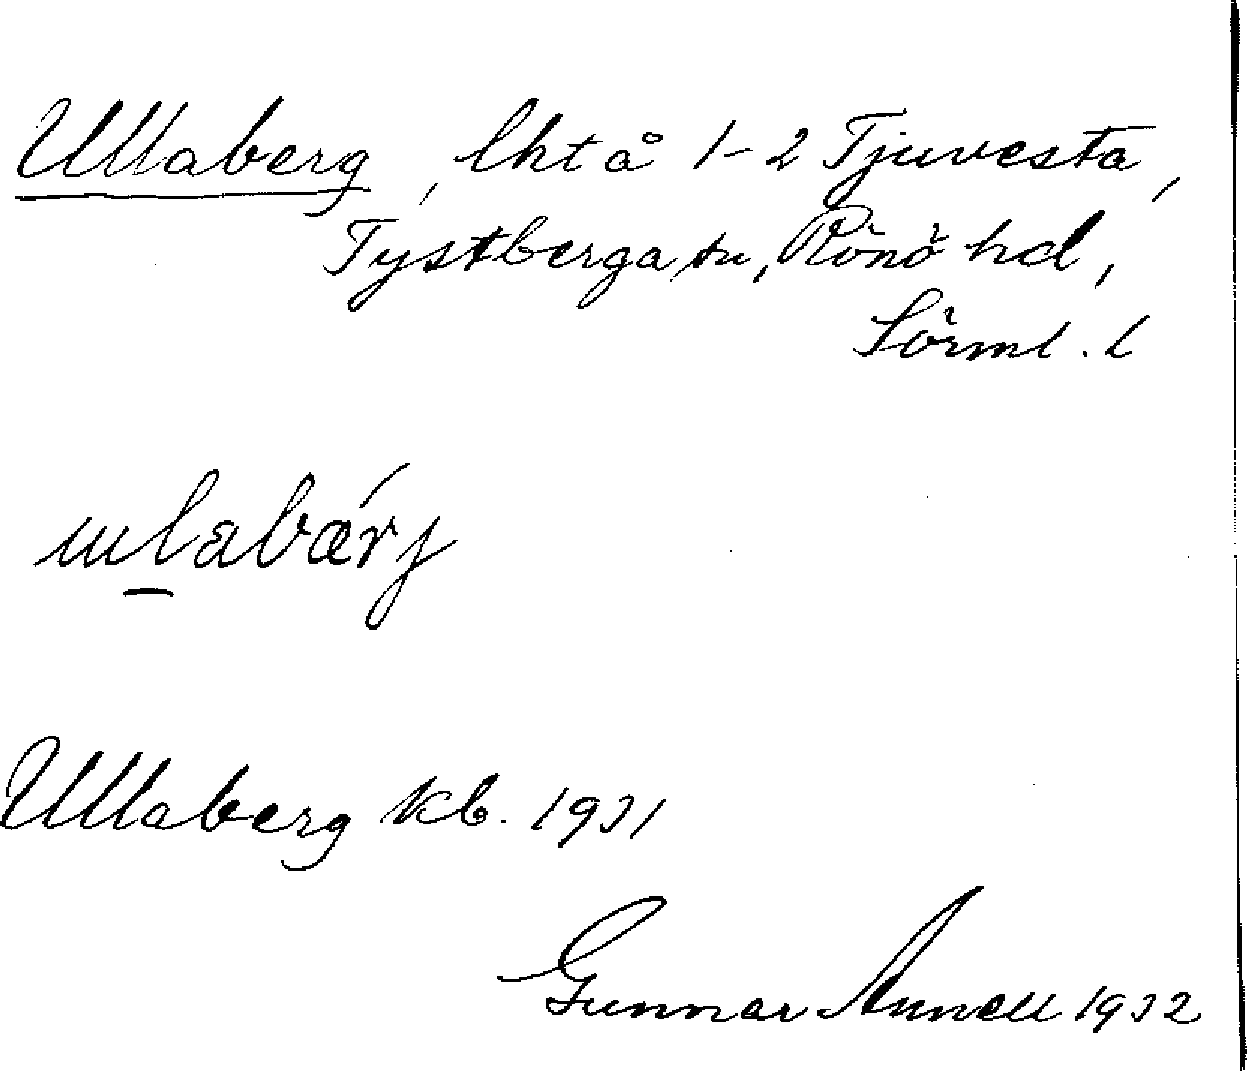 Ullaberg, lht å 1-2 Tjuvesta,
Tystberga sn, Rönö hd,
Sörml. l
ulabærj
Ullaberg kb. 1931
Gunnar Annell 1932